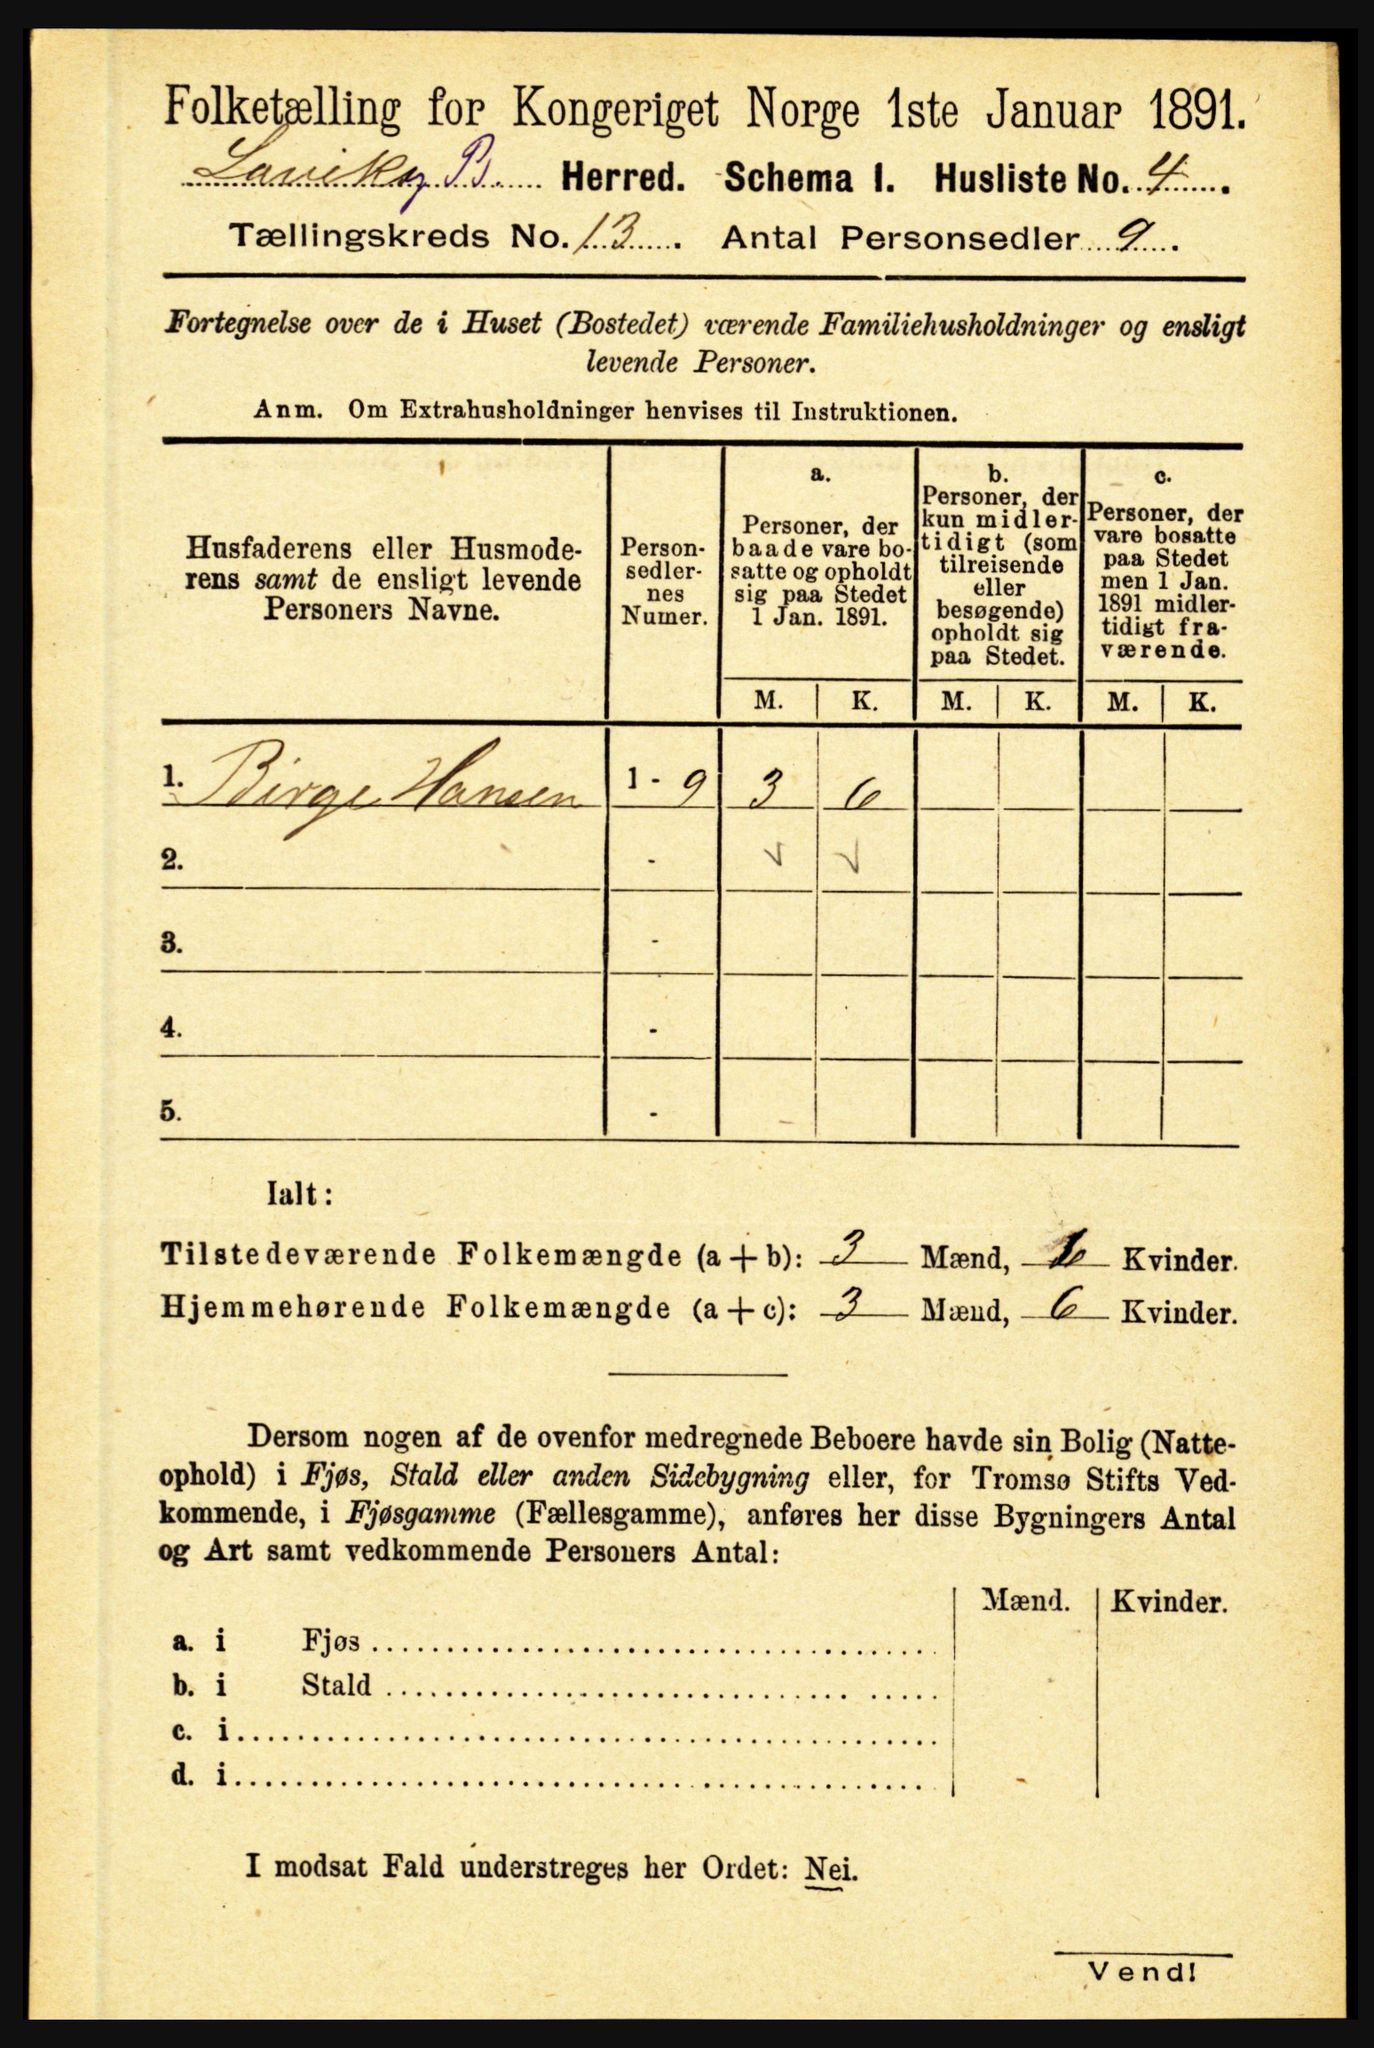 Folketælling for Kongeriget Norge 1ste Januar 1891.
Lavik og B. Herred. Schema 1. Husliste No. 4.
Tællingskreds No. 13. Antal Personsedler 9.
Fortegnelse over de i Huset (Bostedet) værende Familiehusholdninger og ensligt
levende Personer.
Anm. Om Extrahusholdninger henvises til Instruktionen.
Husfaderens eller Husmode-
rens samt de ensligt levende
Personers Navne.
Person-
sedler-
nes
Numer.
a.
Personer, der
baade vare bo-
satte og opholdt
sig paa Stedet
1 Jan. 1891.
b.
Personer, der
kun midler-
tidigt (som
tilreisende
eller
besøgende)
opholdt sig
paa Stedet.
c.
Personer, der
vare bosatte
paa Stedet
men 1 Jan.
1891 midler-
tidigt fra-
værende.
M. K. M. K. M. K.
1. Birge Hansen 1 - 9 3 6
2. - ✓ ✓
3. -
4. -
5. -
Ialt:
Tilstedeværende Folkemængde (a + b): 3 Mænd, 6 Kvinder.
Hjemmehørende Folkemængde (a + c): 3 Mænd, 6 Kvinder.
Dersom nogen af de ovenfor medregnede Beboere havde sin Bolig (Natte-
ophold) i Fjøs, Stald eller anden Sidebygning eller, for Tromsø Stifts Ved-
kommende, i Fjøsgamme (Fællesgamme), anføres her disse Bygningers Antal
og Art samt vedkommende Personers Antal:
Mænd. Kvinder.
a. i Fjøs
b. i Stald
c. i
d. i
I modsat Fald understreges her Ordet: Nei.
Vend!